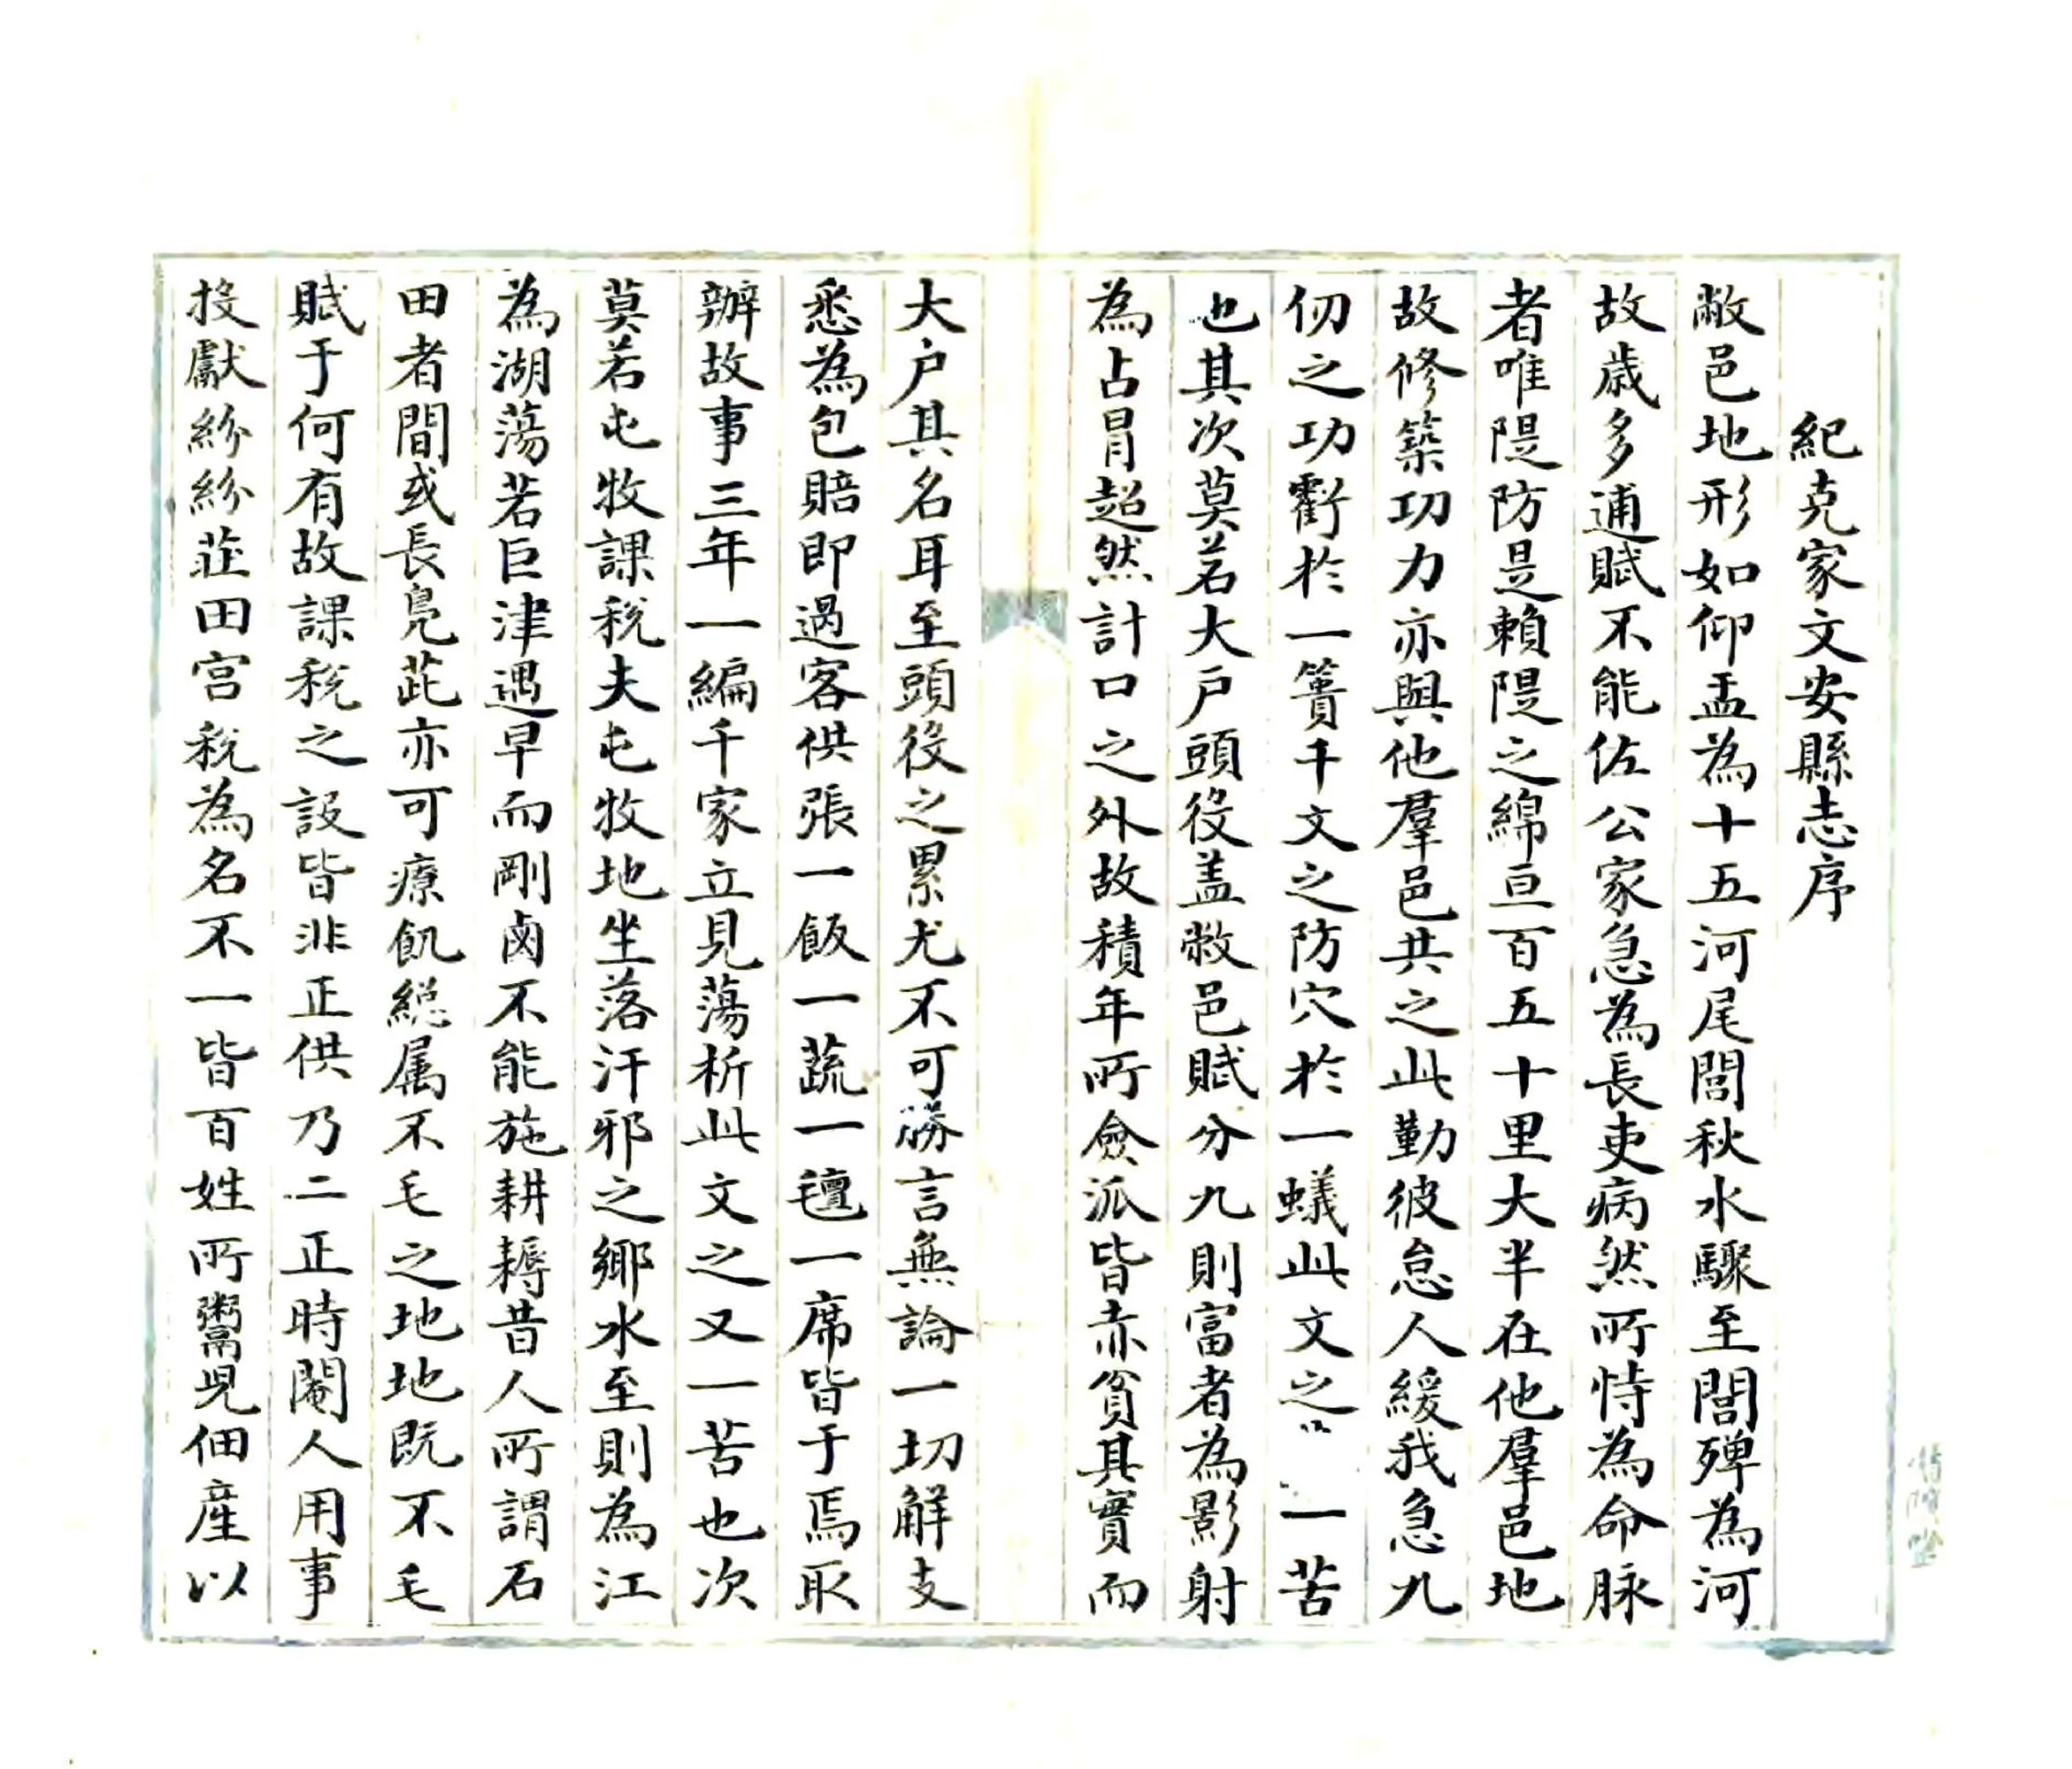 紀克家文安縣志序
敝邑地形如仰盂為十五河尾閭秋水驟至閭殫為河
故歲多逋賦不能佐公家急為長吏病然所恃為命脉
者唯隄防是賴隄之綿亘百五十里大半在他羣邑地
故修築功力亦與他羣邑共之此勤彼怠人緩我急九
仞之功虧於一簣千文之防穴於一蟻此文之一苦
也其次莫若大戶頭役盖敝邑賦分九則富者為影射
為占冒超然計口之外故積年所僉派皆赤貧其實而
大戶其名耳至頭役之累尤不可勝言無論一切解支
悉為包賠即過客供張一飯一蔬一氊一席皆于焉取
辦故事三年一編千家立見蕩析此文之又一苦也次
莫若屯牧課稅夫屯牧地坐落汙邪之鄉水至則為江
為湖蕩若巨津遇旱而剛鹵不能施耕耨昔人所謂石
田者間或長鳧茈亦可療飢縂属不毛之地地既不毛
賦于何有故課稅之設皆非正供乃二正時閹人用事
投獻紛紛莊田宫稅為名不一皆百姓所鬻見佃產以